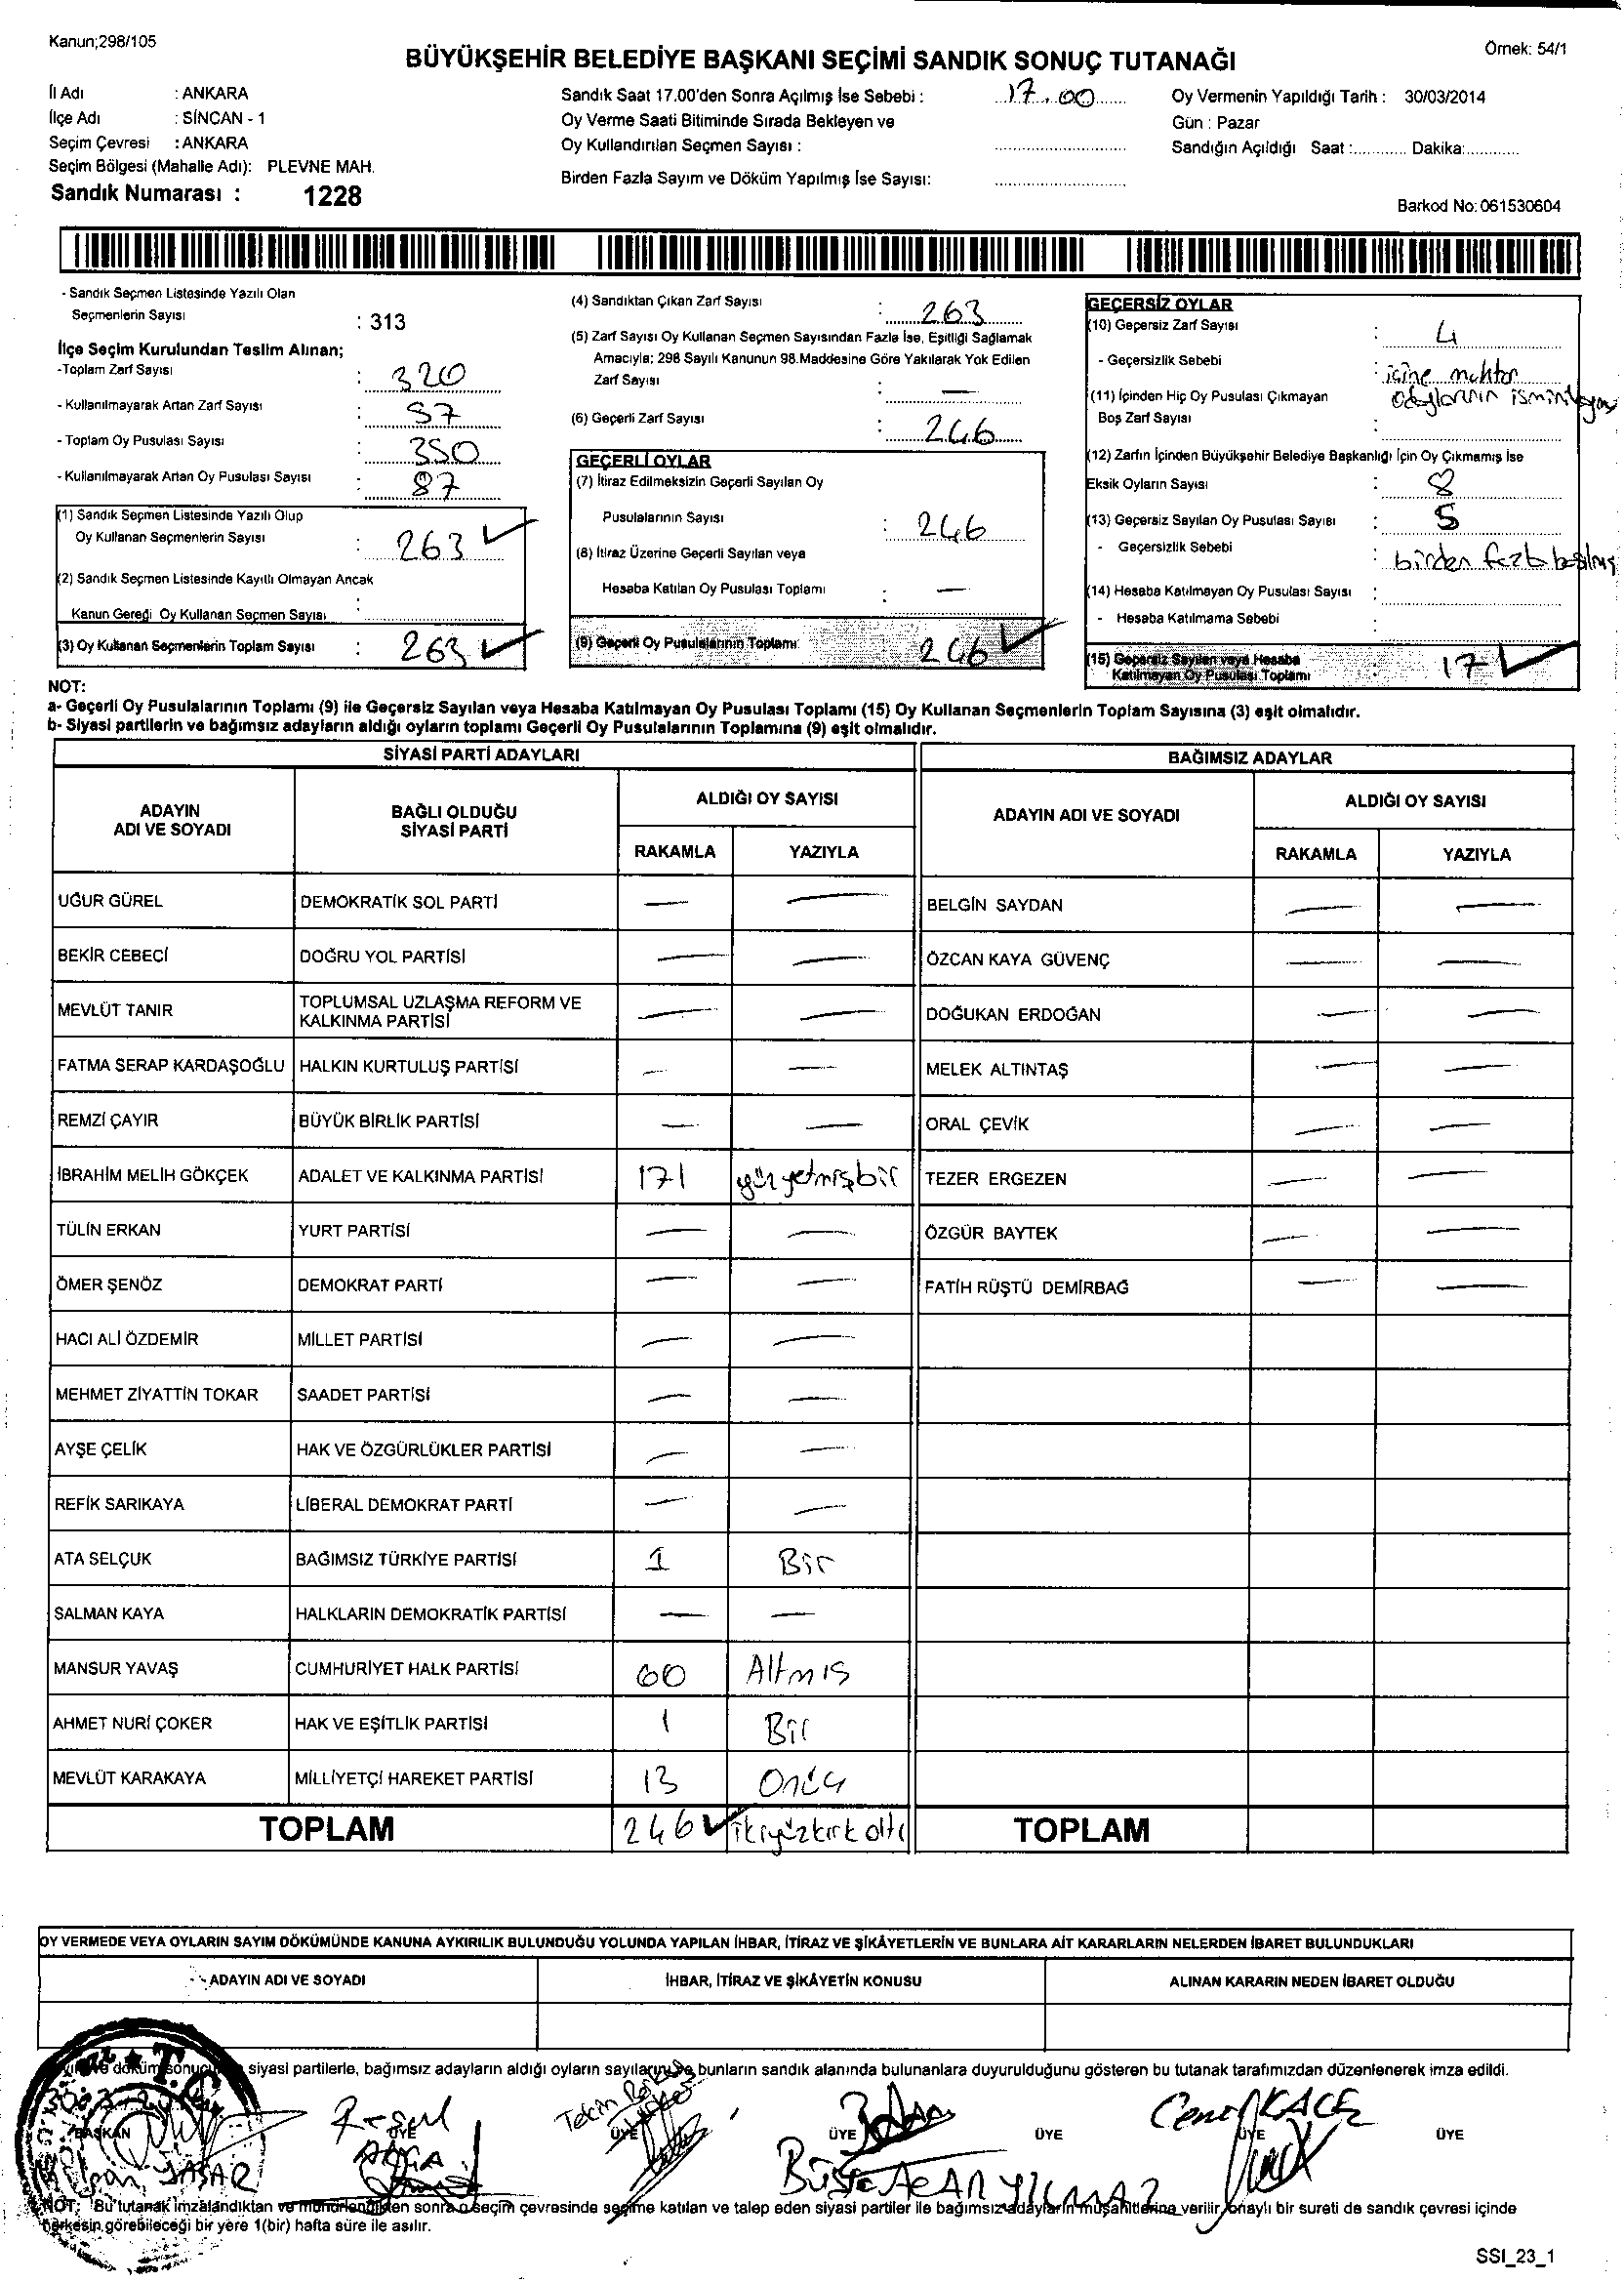 Kanun;298/105
Örnek: 54/1
BÜYÜKŞEHİR BELEDİYE BAŞKANI SEÇİMİ SANDIK SONUÇ TUTANAĞI
İl Adı : ANKARA
İlçe Adı : SİNCAN - 1
Seçim Çevresi : ANKARA
Seçim Bölgesi (Mahalle Adı): PLEVNE MAH.
Sandık Numarası : 1228
Sandık Saat 17.00'den Sonra Açılmış İse Sebebi : 17.00
Oy Verme Saati Bitiminde Sırada Bekleyen ve
Oy Kullandırılan Seçmen Sayısı :
Birden Fazla Sayım ve Döküm Yapılmış İse Sayısı:
Oy Vermenin Yapıldığı Tarih : 30/03/2014
Gün : Pazar
Sandığın Açıldığı Saat :............ Dakika:............
Barkod No: 061530604
- Sandık Seçmen Listesinde Yazılı Olan
Seçmenlerin Sayısı : 313
İlçe Seçim Kurulundan Teslim Alınan;
-Toplam Zarf Sayısı : 320
- Kullanılmayarak Artan Zarf Sayısı : 57
- Toplam Oy Pusulası Sayısı : 350
- Kullanılmayarak Artan Oy Pusulası Sayısı : 87
(1) Sandık Seçmen Listesinde Yazılı Olup
Oy Kullanan Seçmenlerin Sayısı : 263
(2) Sandık Seçmen Listesinde Kayıtlı Olmayan Ancak
Kanun Gereği Oy Kullanan Seçmen Sayısı :
(3) Oy Kullanan Seçmenlerin Toplam Sayısı : 263
(4) Sandıktan Çıkan Zarf Sayısı : 263
(5) Zarf Sayısı Oy Kullanan Seçmen Sayısından Fazla İse, Eşitliği Sağlamak
Amacıyla; 298 Sayılı Kanunun 98.Maddesine Göre Yakılarak Yok Edilen
Zarf Sayısı : —
(6) Geçerli Zarf Sayısı : 246
GEÇERLİ OYLAR
(7) İtiraz Edilmeksizin Geçerli Sayılan Oy
Pusulalarının Sayısı : 246
(8) İtiraz Üzerine Geçerli Sayılan veya
Hesaba Katılan Oy Pusulası Toplamı : —
(9) Geçerli Oy Pusulalarının Toplamı: 246
GEÇERSİZ OYLAR
(10) Geçersiz Zarf Sayısı : 4
- Geçersizlik Sebebi : içine muhtar
adaylarının ismini
(11) İçinden Hiç Oy Pusulası Çıkmayan
Boş Zarf Sayısı :
(12) Zarfın İçinden Büyükşehir Belediye Başkanlığı İçin Oy Çıkmamış İse
Eksik Oyların Sayısı : 8
(13) Geçersiz Sayılan Oy Pusulası Sayısı : 5
- Geçersizlik Sebebi : birden fazla basılmış
(14) Hesaba Katılmayan Oy Pusulası Sayısı :
- Hesaba Katılmama Sebebi :
(15) Geçersiz Sayılan veya Hesaba
Katılmayan Oy Pusulası Toplamı : 17
NOT:
a- Geçerli Oy Pusulalarının Toplamı (9) ile Geçersiz Sayılan veya Hesaba Katılmayan Oy Pusulası Toplamı (15) Oy Kullanan Seçmenlerin Toplam Sayısına (3) eşit olmalıdır.
b- Siyasi partilerin ve bağımsız adayların aldığı oyların toplamı Geçerli Oy Pusulalarının Toplamına (9) eşit olmalıdır.
SİYASİ PARTİ ADAYLARI
ADAYIN ADI VE SOYADI
BAĞLI OLDUĞU SİYASİ PARTİ
ALDIĞI OY SAYISI
RAKAMLA YAZIYLA
UĞUR GÜREL DEMOKRATİK SOL PARTİ — —
BEKİR CEBECİ DOĞRU YOL PARTİSİ — —
MEVLÜT TANIR TOPLUMSAL UZLAŞMA REFORM VE KALKINMA PARTİSİ — —
FATMA SERAP KARDAŞOĞLU HALKIN KURTULUŞ PARTİSİ — —
REMZİ ÇAYIR BÜYÜK BİRLİK PARTİSİ — —
İBRAHİM MELİH GÖKÇEK ADALET VE KALKINMA PARTİSİ 171 yüzyetmişbir
TÜLİN ERKAN YURT PARTİSİ — —
ÖMER ŞENÖZ DEMOKRAT PARTİ — —
HACI ALİ ÖZDEMİR MİLLET PARTİSİ — —
MEHMET ZİYATTİN TOKAR SAADET PARTİSİ — —
AYŞE ÇELİK HAK VE ÖZGÜRLÜKLER PARTİSİ — —
REFİK SARIKAYA LİBERAL DEMOKRAT PARTİ — —
ATA SELÇUK BAĞIMSIZ TÜRKİYE PARTİSİ 1 Bir
SALMAN KAYA HALKLARIN DEMOKRATİK PARTİSİ — —
MANSUR YAVAŞ CUMHURİYET HALK PARTİSİ 60 Altmıs
AHMET NURİ ÇOKER HAK VE EŞİTLİK PARTİSİ 1 Bir
MEVLÜT KARAKAYA MİLLİYETÇİ HAREKET PARTİSİ 13 Onüç
TOPLAM 246 ikiyüzkırk altı
BAĞIMSIZ ADAYLAR
ADAYIN ADI VE SOYADI
ALDIĞI OY SAYISI
RAKAMLA YAZIYLA
BELGİN SAYDAN — —
ÖZCAN KAYA GÜVENÇ — —
DOĞUKAN ERDOĞAN — —
MELEK ALTINTAŞ — —
ORAL ÇEVİK — —
TEZER ERGEZEN — —
ÖZGÜR BAYTEK — —
FATİH RÜŞTÜ DEMİRBAĞ — —
TOPLAM
OY VERMEDE VEYA OYLARIN SAYIM DÖKÜMÜNDE KANUNA AYKIRILIK BULUNDUĞU YOLUNDA YAPILAN İHBAR, İTİRAZ VE ŞİKÂYETLERİN VE BUNLARA AİT KARARLARIN NELERDEN İBARET BULUNDUKLARI
ADAYIN ADI VE SOYADI
İHBAR, İTİRAZ VE ŞİKÂYETİN KONUSU
ALINAN KARARIN NEDEN İBARET OLDUĞU
döküm siyasi partilerle, bağımsız adayların aldığı oyların bunların sandık alanında bulunanlara duyurulduğunu gösteren bu tutanak tarafımızdan düzenlenerek imza edildi.
T.C.
BAŞKAN ÜYE ÜYE ÜYE ÜYE ÜYE ÜYE
YAŞAR
Tekin
Büşra ACAR YILMAZ
NOT: Bu tutanak imzalandıktan ve mühürlendikten sonra o seçim çevresinde seçime katılan ve talep eden siyasi partiler ile bağımsız adayların müşahitlerine verilir, onaylı bir sureti de sandık çevresi içinde
herkesin görebileceği bir yere 1(bir) hafta süre ile asılır.
SSI_23_1